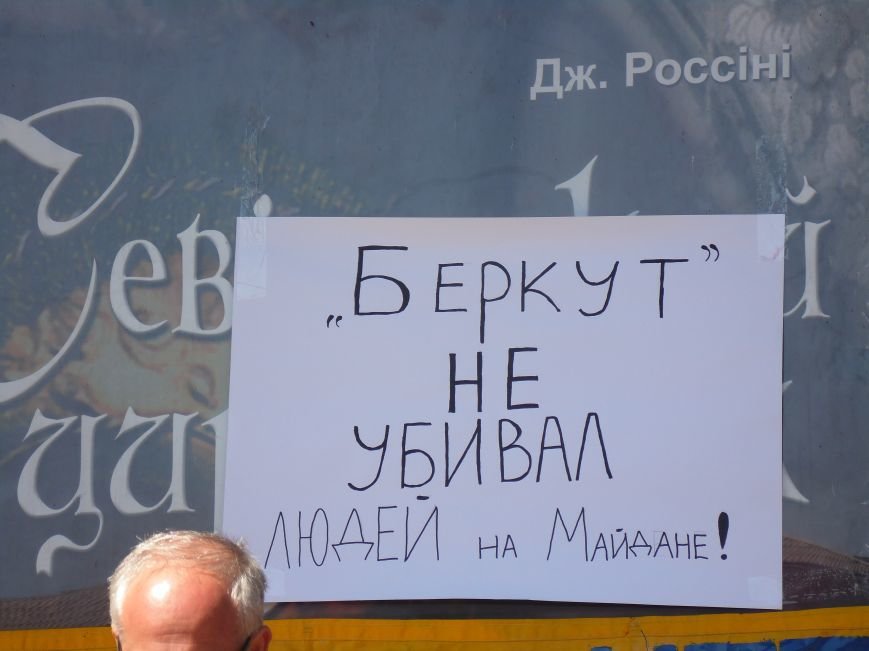 Дж. Россіні
„Беркут”
не
убивал
людей на Майдане!